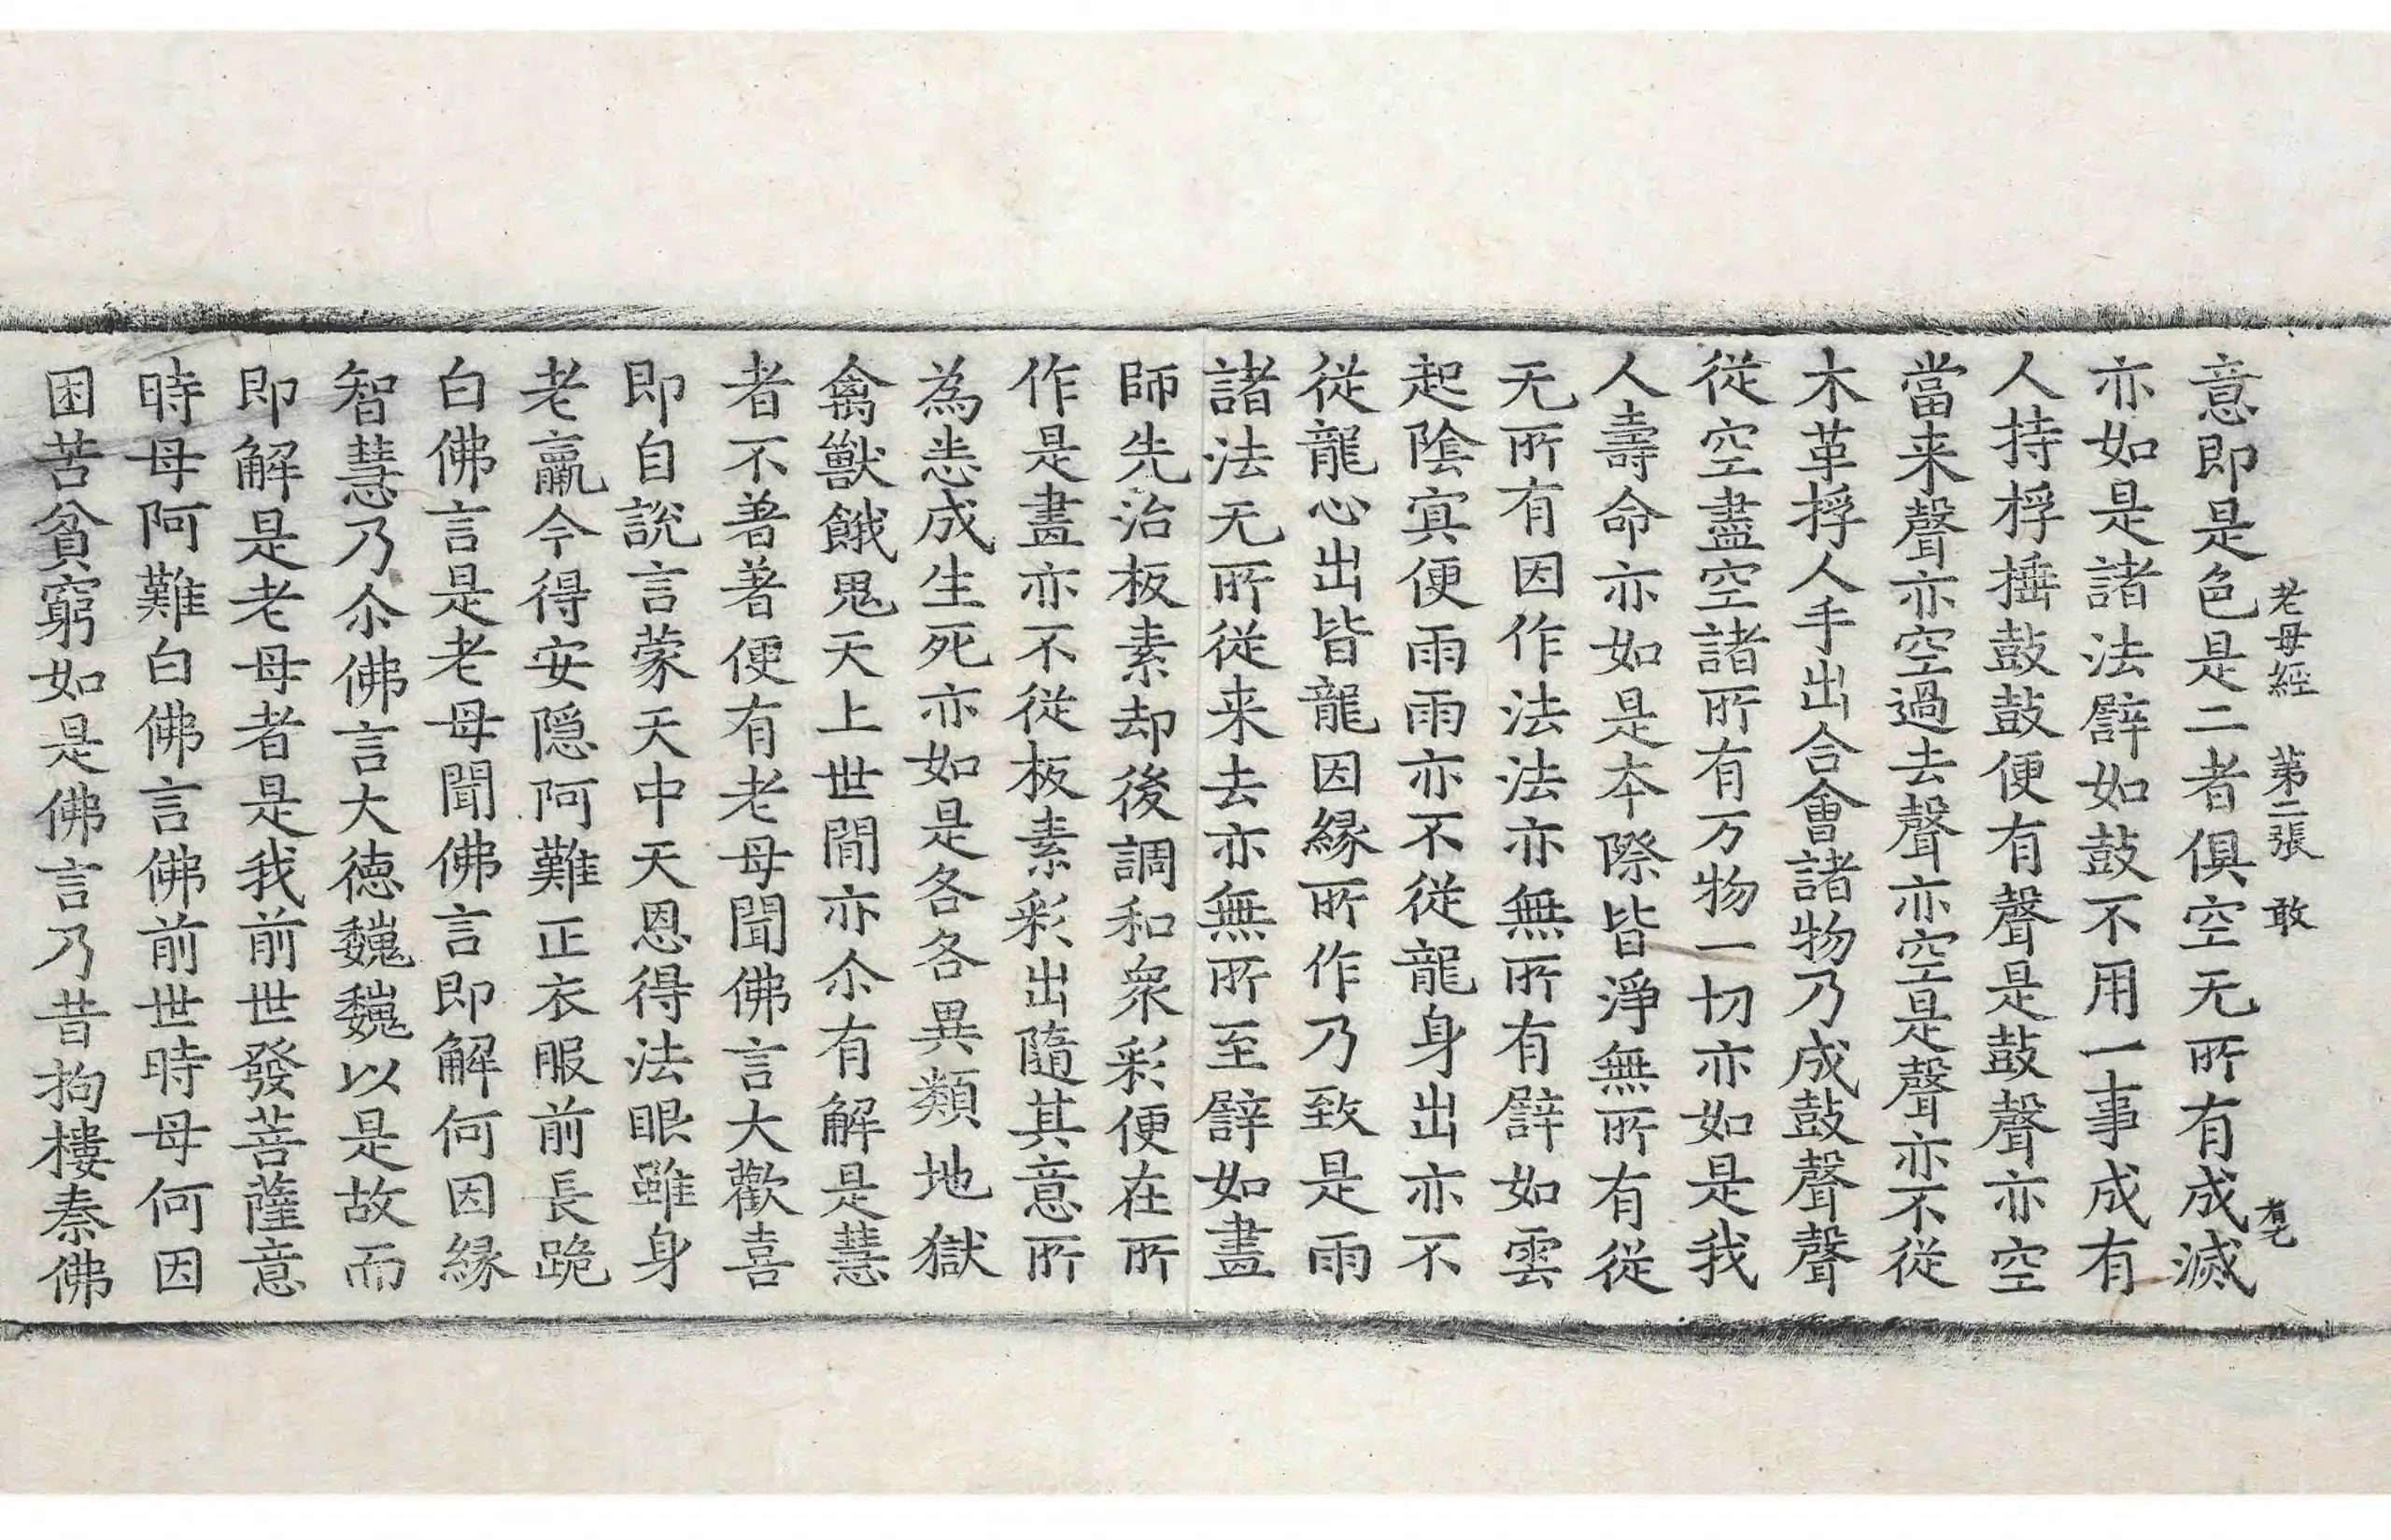 老母經　第二張　敢
意即是色是二者俱空无所有成滅
亦如是諸法譬如鼓不用一事成有
人持桴捶鼓鼓便有聲是鼓聲亦空
當来聲亦空過去聲亦空是聲亦不從
木革桴人手出合會諸物乃成鼓聲聲
從空盡空諸所有万物一切亦如是我
人壽命亦如是本際皆淨無所有從
无所有因作法法亦無所有譬如雲
起陰冥便雨雨亦不從龍身出亦不
從龍心出皆龍因緣所作乃致是雨
諸法无所從来去亦無所至譬如畫
師先治板素却後調和衆彩便在所
作是畫亦不從板素彩出隨其意所
為悉成生死亦如是各各異類地獄
禽獸餓鬼天上世間亦尒有解是慧
者不著著便有老母聞佛言大歡喜
即自說言蒙天中天恩得法眼雖身
老羸今得安隱阿難正衣服前長跪
白佛言是老母聞佛言即解何因緣
智慧乃尒佛言大德巍巍以是故而
即解是老母者是我前世發菩薩意
時母阿難白佛言佛前世時母何因
困苦貧窮如是佛言乃昔拘樓秦佛